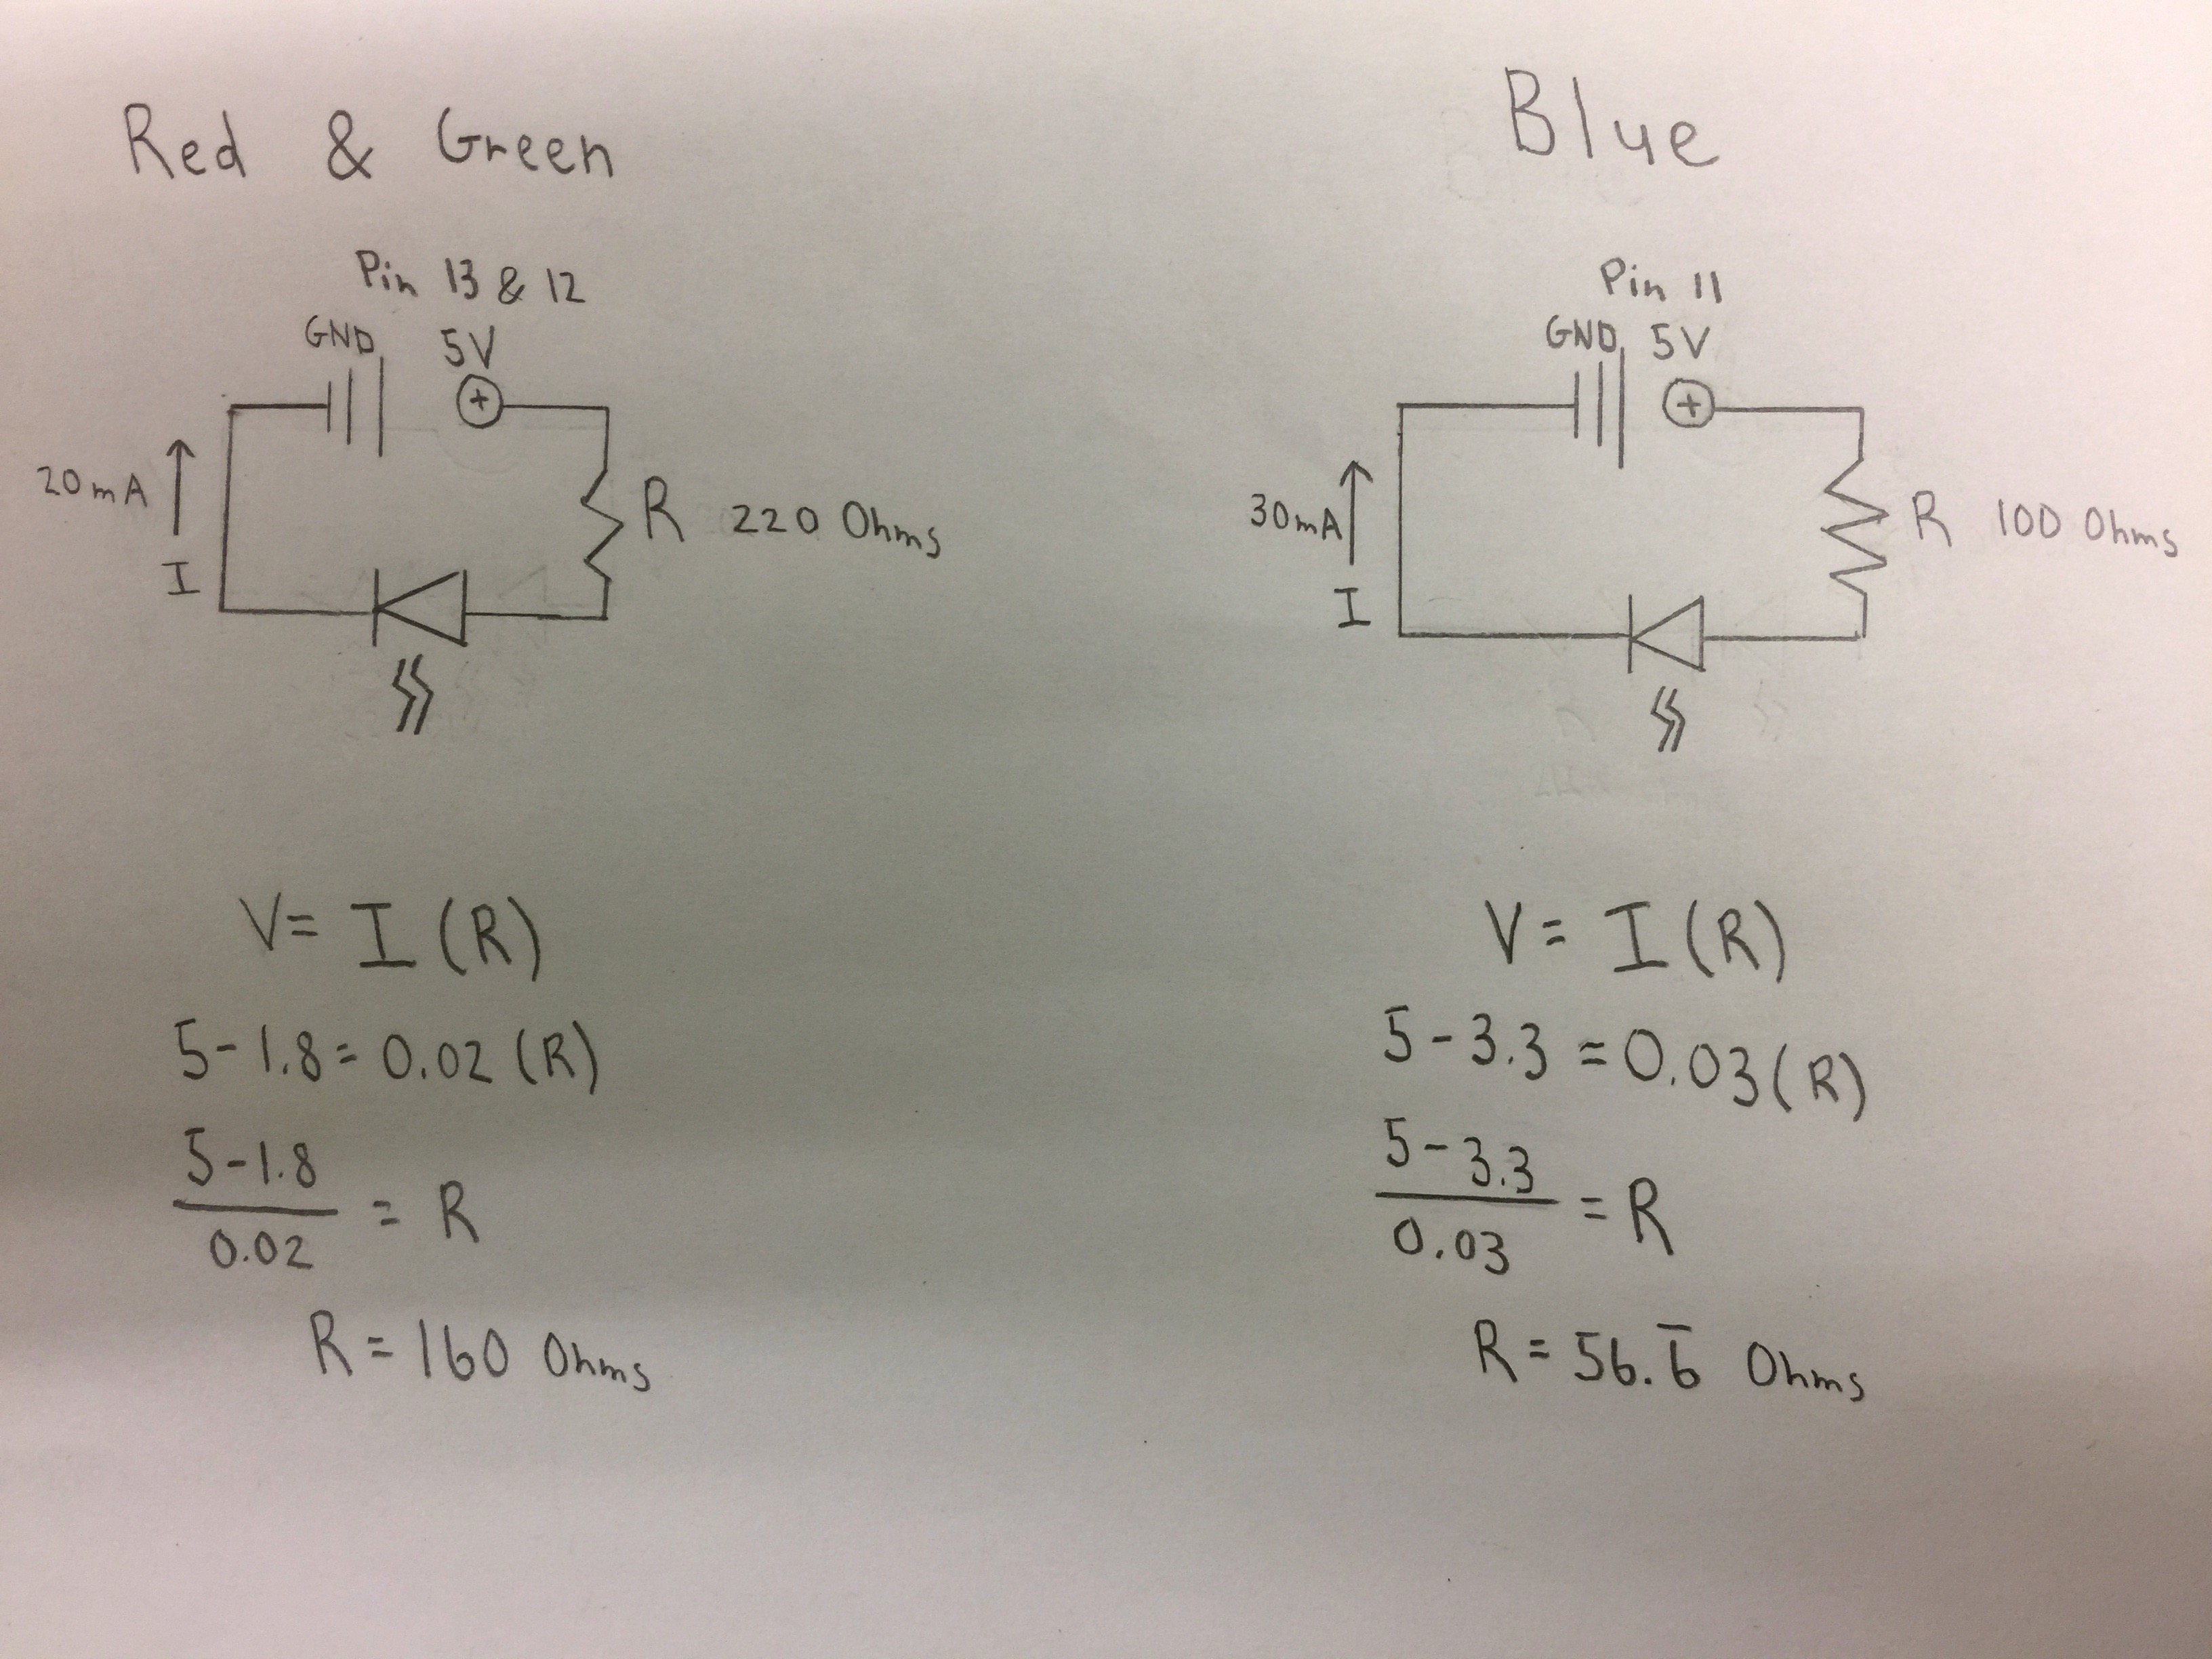 Red & Green
Pin 13 & 12
GND 5V
+
20mA
I
R 220 Ohms
V = I (R)
5-1.8 = 0.02 (R)
5-1.8
0.02
= R
R = 160 Ohms
Blue
Pin 11
GND 5V
+
30mA
I
R 100 Ohms
V = I (R)
5-3.3 = 0.03 (R)
5-3.3
0.03
= R
R = 56.6̅ Ohms